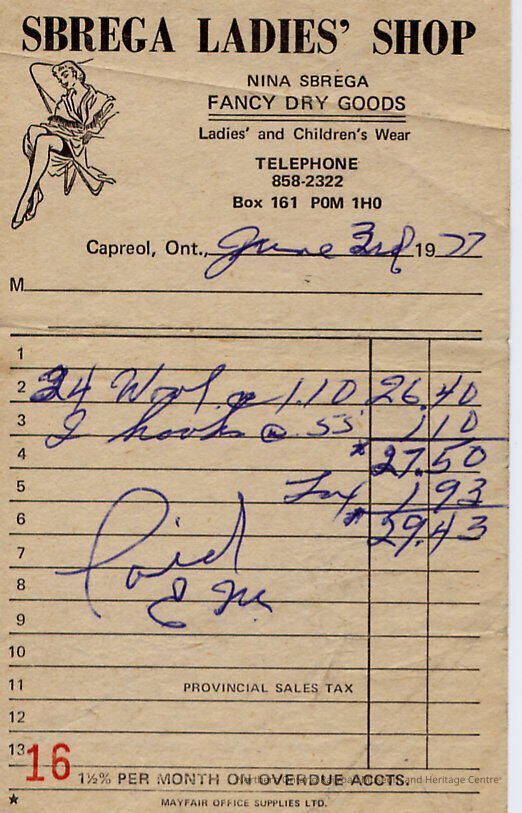 SBREGA LADIES' SHOP
NINA SBREGA
FANCY DRY GOODS
Ladies' and Children's Wear
TELEPHONE
858-2322
Box 161 P0M 1H0
Capreol, Ont., June 3rd 1977
M
1
2 24 Wool @ 1.10 26.40
3 2 hooks @ .55 1 10
4 * 27.50
5 Tax 1 93
6 * 29.43
7 Paid
8
9
10
11 PROVINCIAL SALES TAX
12
13
16 1½% PER MONTH ON OVERDUE ACCTS.
Northern Ontario Railroad Museum and Heritage Centre
* MAYFAIR OFFICE SUPPLIES LTD.